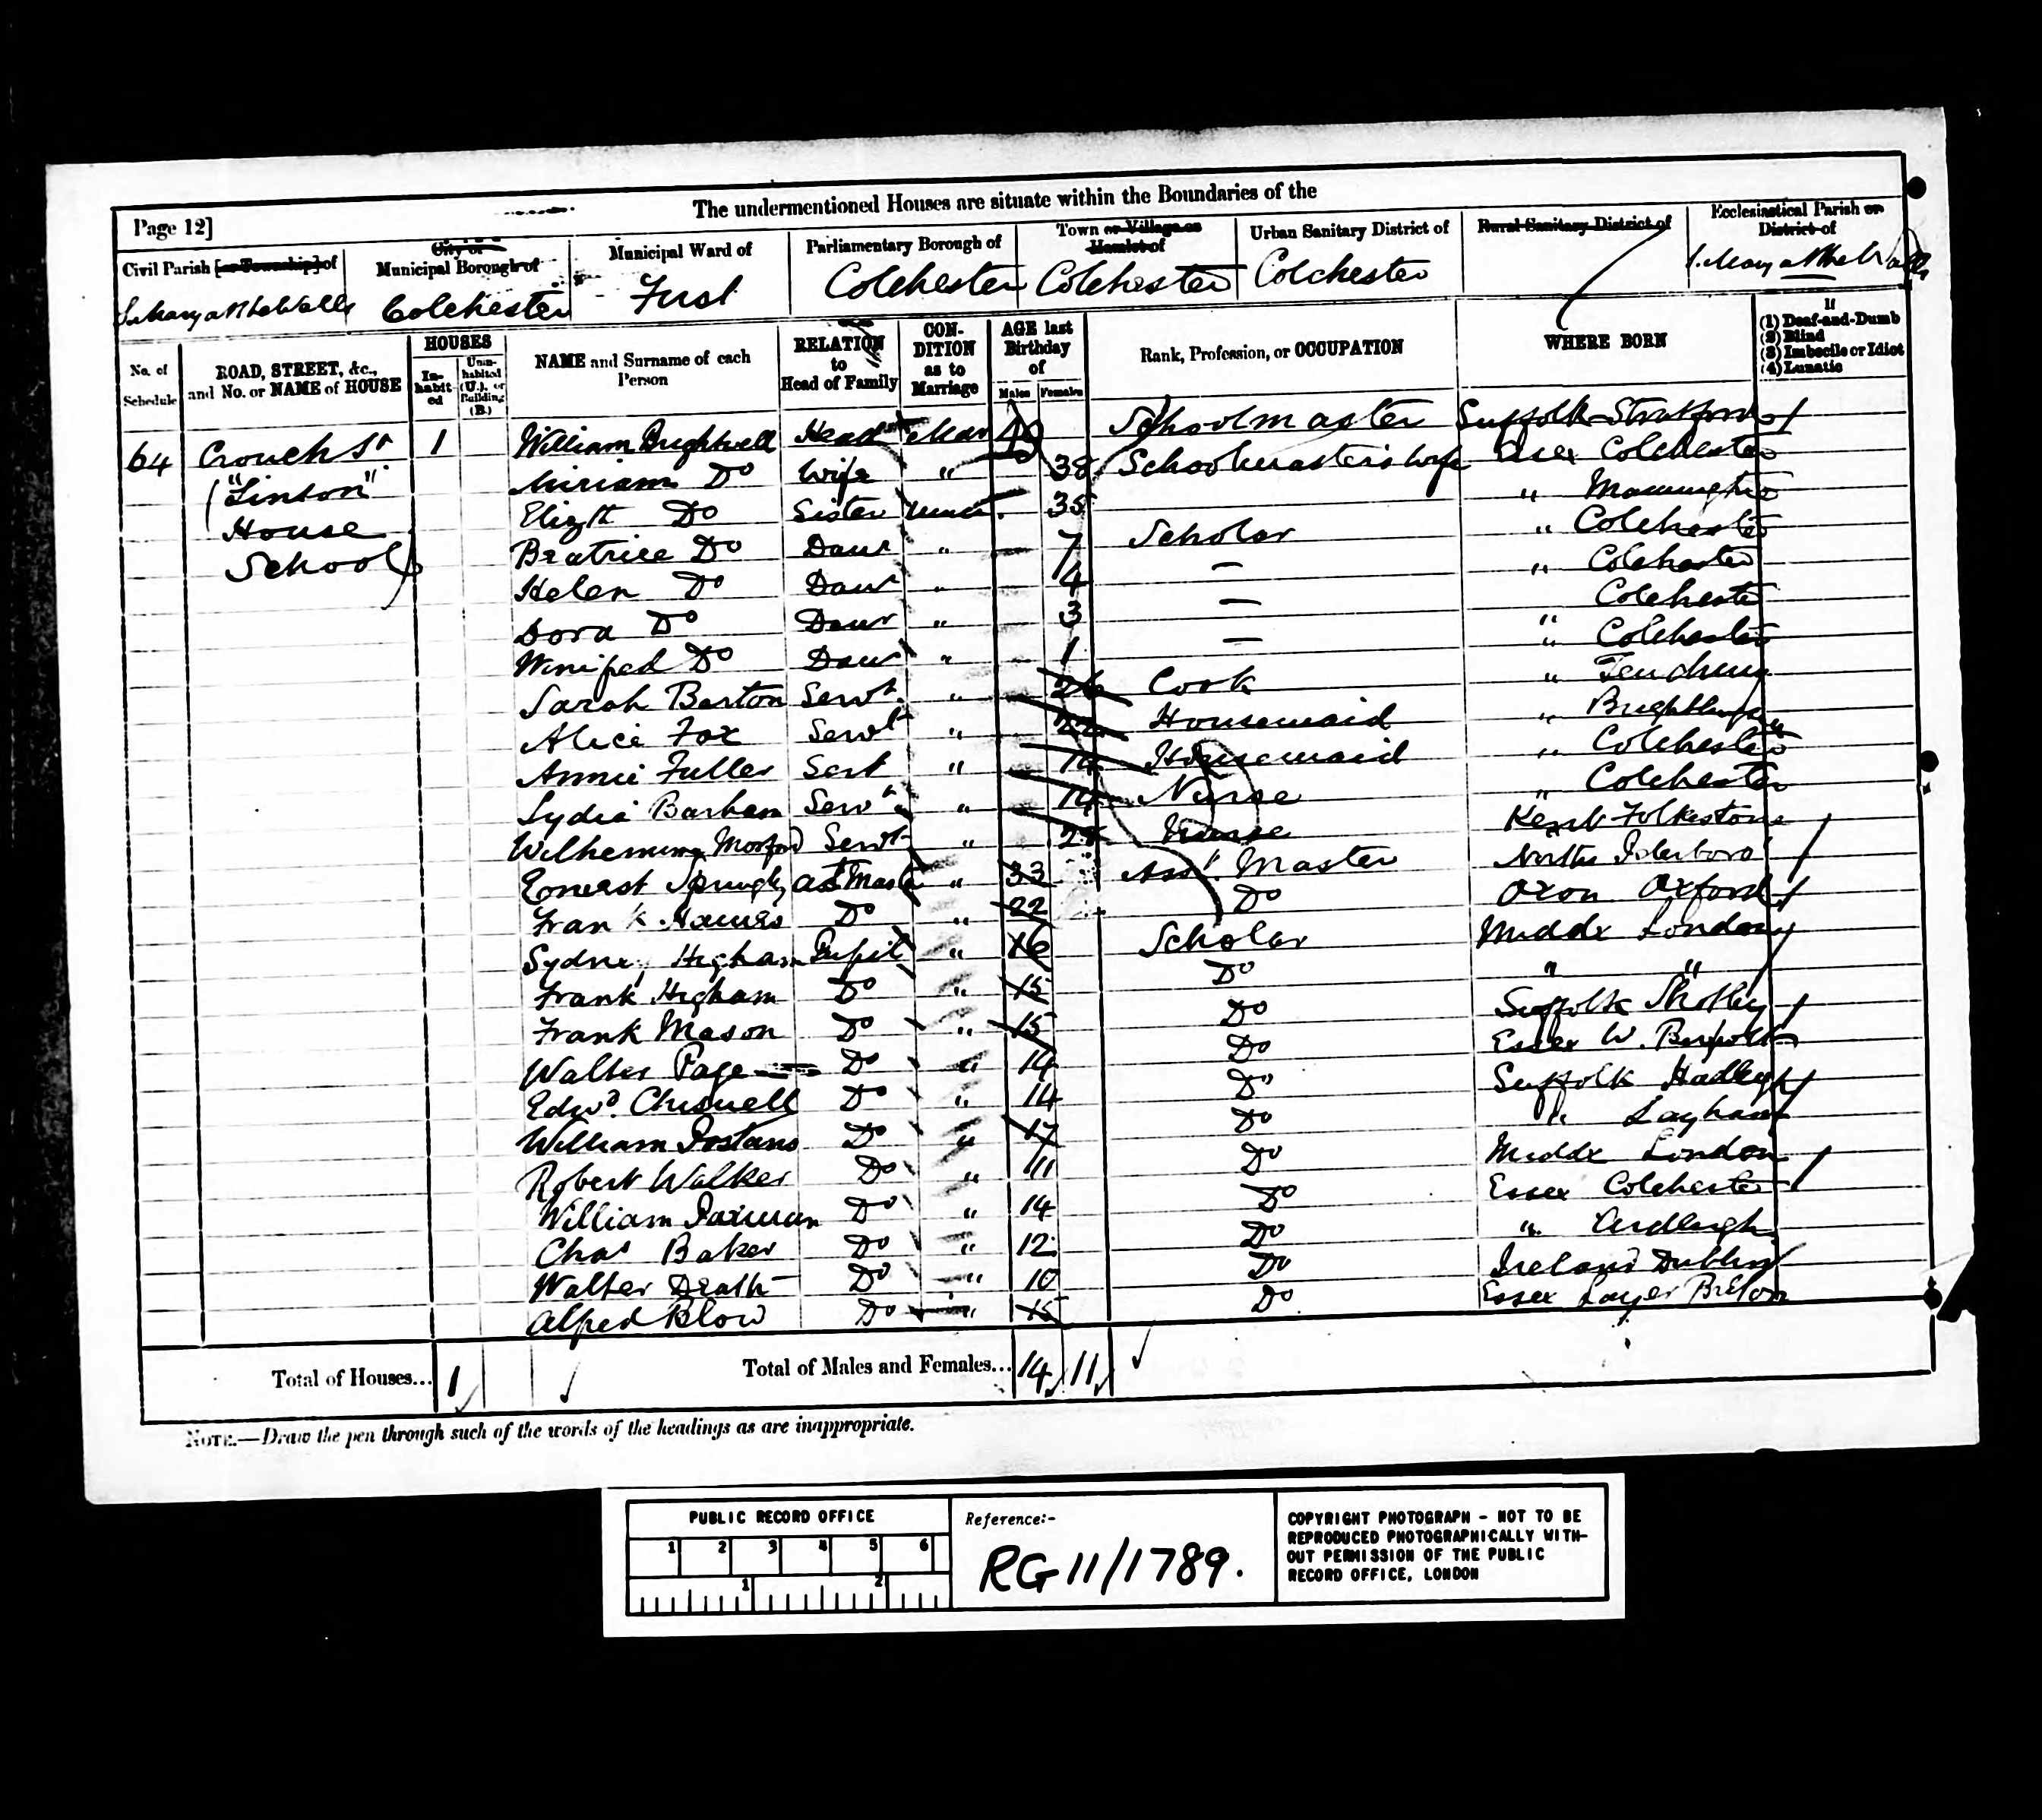 The undermentioned Houses are situate within the Boundaries of the
Page 12]
Civil Parish [or Township] of
City or Municipal Borough of
Municipal Ward of
Parliamentary Borough of
Town or Village or Hamlet of
Urban Sanitary District of
Rural Sanitary District of
Ecclesiastical Parish or District of
Colchester First Colchester Colchester Colchester
No. of Schedule
ROAD, STREET, &c., and No. or NAME of HOUSE
HOUSES
In-habit-ed
Unin-habited (U.), or Building (B.)
NAME and Surname of each Person
RELATION to Head of Family
CON-DITION as to Marriage
AGE last Birthday of
Males Females
Rank, Profession, or OCCUPATION
WHERE BORN
If
(1) Deaf-and-Dumb
(2) Blind
(3) Imbecile or Idiot
(4) Lunatic
64 Crouch St 1 William Brightwell Head Mar 49 Schoolmaster Suffolk Stratford
"Linton" Miriam Do Wife " 38 Schoolmaster's wife Essex Colchester
House Elizth Do Sister 35 "
School Beatrice Do Daur " 7 Scholar " Colchester
Helen Do Daur " 4 — " Colchester
Dora Do Daur " 3 — " Colchester
Winifred Do Daur " 1 — " Colchester
Sarah Barton Servt " 26 Cook " Tendring
Alice Fox Servt " 22 Housemaid "
Annie Fuller Sert " Housemaid " Colchester
Lydia Barham Servt " 14 Nurse " Colchester
Servt " Nurse Kent Folkestone
" 33 Asst. Master Northn Peterboro
Frank Do " 22 Do Oxon Oxford
Sydney Higham Pupil " 16 Scholar Middx London
Frank Higham Do " 15 Do " "
Frank Mason Do " 15 Do Suffolk Shotley
Walter Page Do " 14 Do Essex W. Bergholt
Edwd. Chisnell Do " 14 Do Suffolk Hadleigh
William Postans Do " Do " Layham
Robert Walker Do " 11 Do Middx London
William Paxman Do " 14 Do Essex Colchester
Chas Baker Do " 12 Do " Ardleigh
Walter Death Do " 10 Do Ireland Dublin
Alfred Blow Do " 15 Do Essex Layer Breton
Total of Houses... 1 Total of Males and Females... 14 11
NOTE.—Draw the pen through such of the words of the headings as are inappropriate.
PUBLIC RECORD OFFICE
1 2 3 4 5 6
1 2
Reference:-
RG 11/1789.
COPYRIGHT PHOTOGRAPH - NOT TO BE
REPRODUCED PHOTOGRAPHICALLY WITH-
OUT PERMISSION OF THE PUBLIC
RECORD OFFICE, LONDON